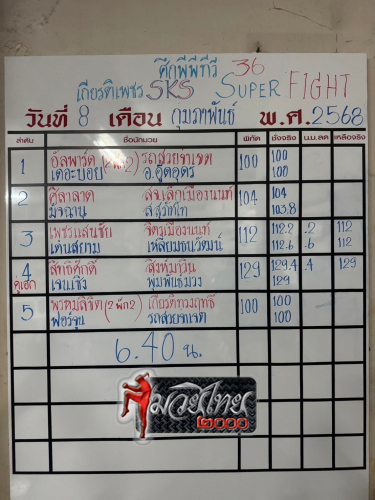 ศึกพีพีทีวี 36
เกียรติเพชร SKS SUPER FIGHT
วันที่ 8 เดือน กุมภาพันธ์ พ.ศ. 2568
ลำดับ ชื่อนักมวย พิกัด ชั่งจริง น.น.ลด เหลือจริง
1 อัลฟาร์ด (2พัก2) รถสวยจ.เขต 100 100
เดอะบอย อ.อุดอุดร 100
2 ศิลาลาด ส.จ.เล็กเมืองนนท์ 104 104
มังฉาน 103.8
3 เพชรแสนชัย จิตรเมืองนนท์ 112 112.2 .2 112
เด่นสยาม เหลี่ยมธนวัฒน์ 112.6 .6 112
4 สิทธิศักดิ์ สิงห์มาวิน 129 129.4 .4 129
คู่เอก เจนเชิง พุ่มพันธ์ม่วง 129
5 พรหมลิขิต (2พัก2) เกียรติทรงฤทธิ์ 100 100
ฟอร์จูน รถสวยจ.เขต 100
6.40 น.
มวยไทย
๒๐๐๐